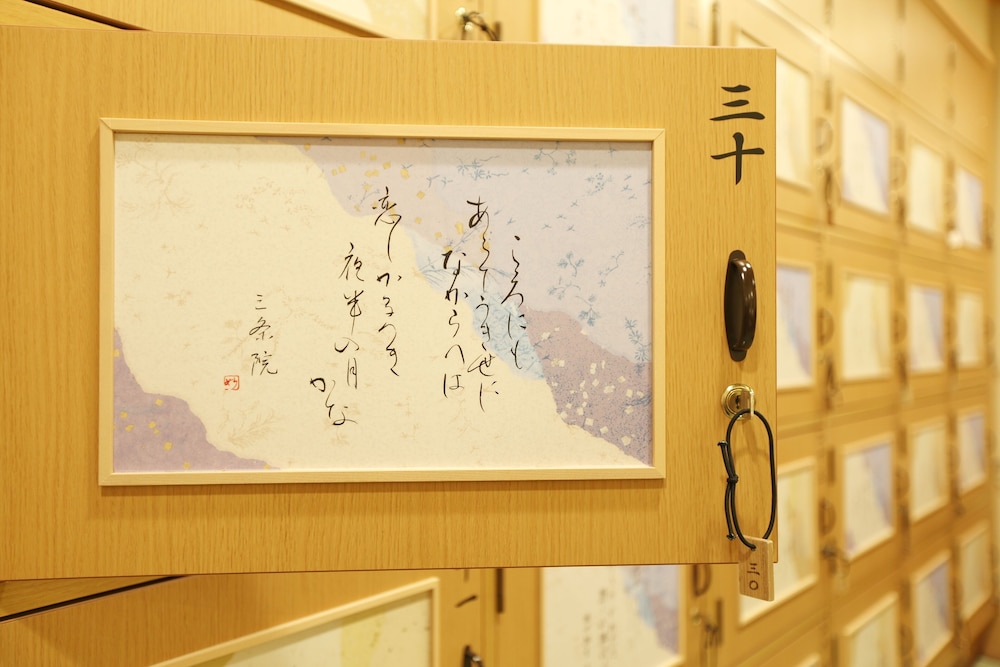 三十
こゝろにも
あらてうき世に
なからへは
恋しかるへき
夜半の月
かな
三条院
三〇